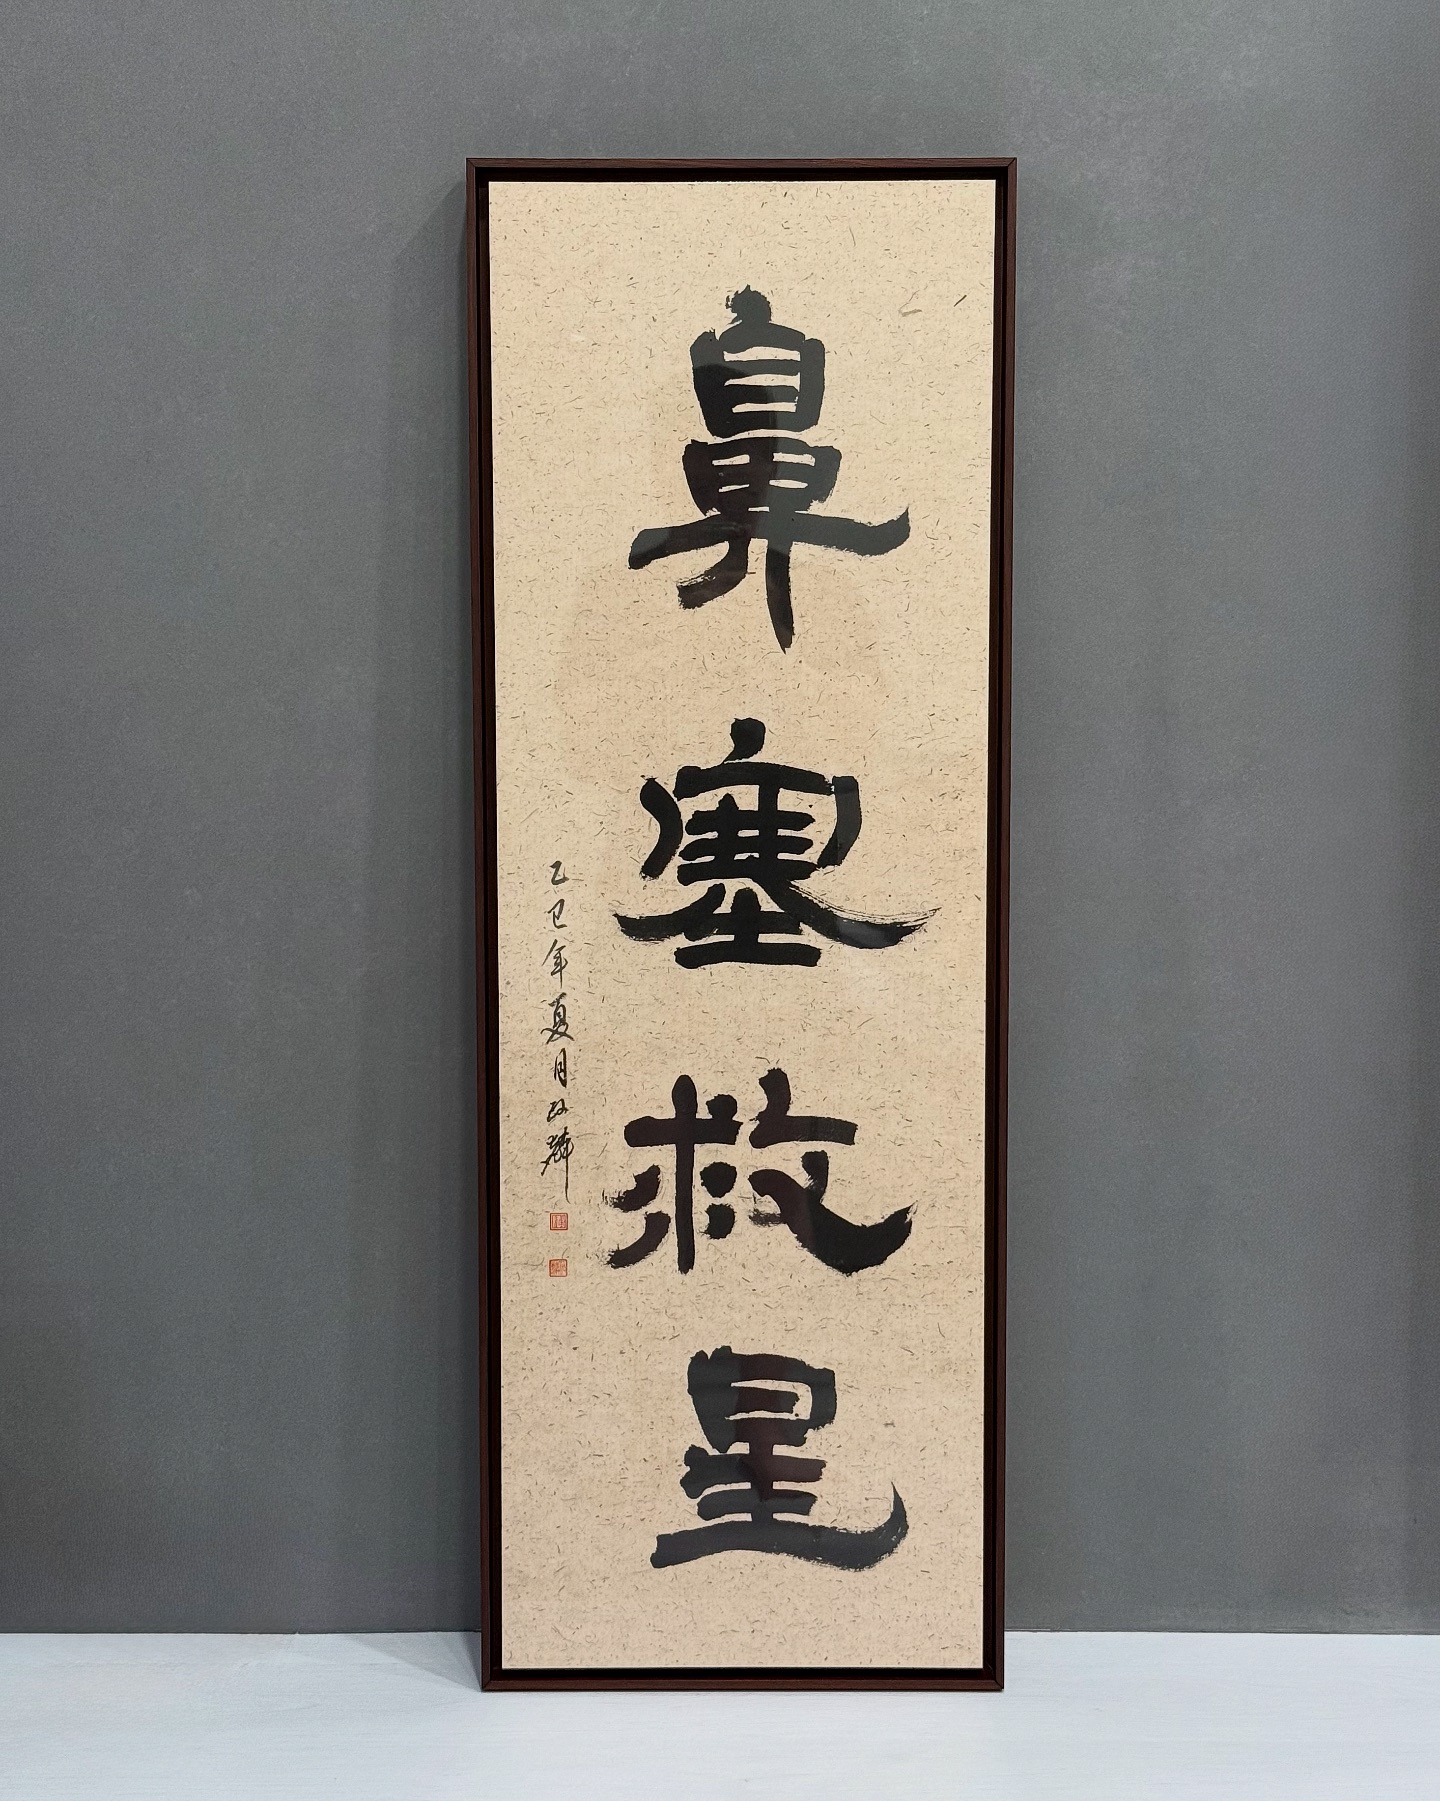 鼻塞救星
乙巳年夏月政